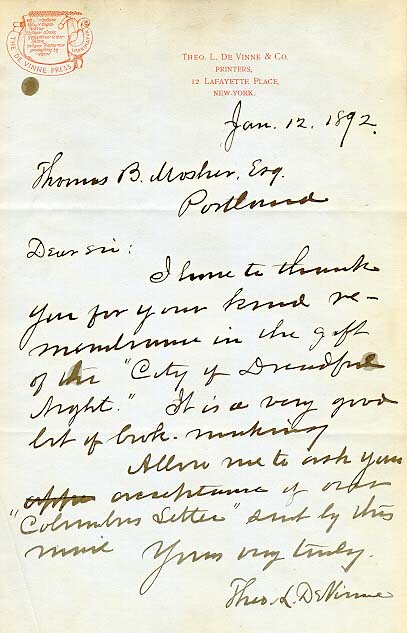 THE DE VINNE PRESS
THEO. L. DE VINNE & CO.
PRINTERS,
12 LAFAYETTE PLACE,
NEW-YORK.
Jan. 12. 1892.
Thomas B. Mosher, Esq.
Portland
Dear Sir:
I have to thank
you for your kind re-
membrance in the gift
of the "City of Dreadful
Night." It is a very good
bit of book-making
Allow me to ask your
acceptance of our
"Columbus Letter" sent by this
mail Yours very truly.
Theo. L. DeVinne